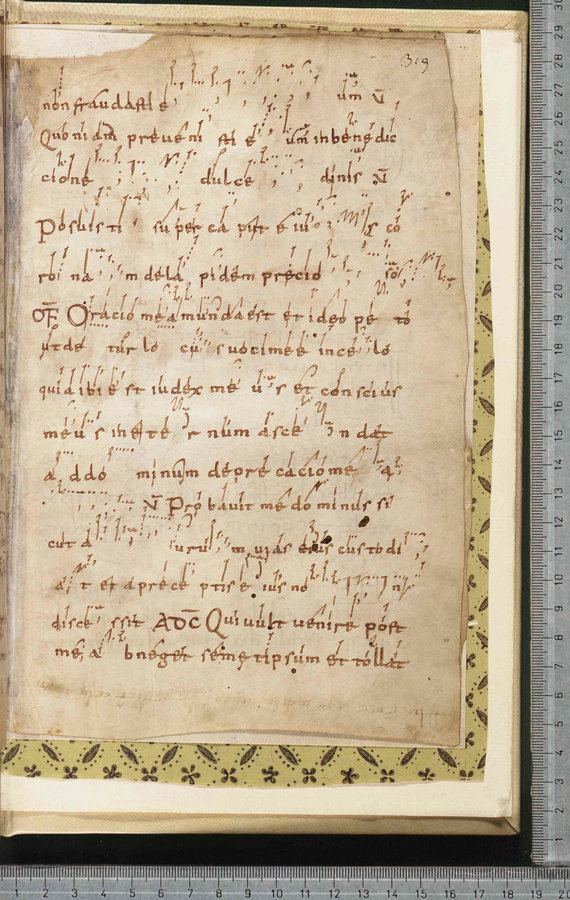 319
non fraudasti e um V̄
Quoniam preveni sti e um inbenedic
cione dulce dinis V̄
Posuisti super caput eius co
rona m dela pidem precio so
OF Oracio mea munda est et ideo pe to
ut de tur lo cu s voci mee in ce lo
quia ibi est iudex me u s et conscius
meu s in excelse
a ddo minum depre cacio me a
V̄ Probavit me dominus si
cut a urum vias eius custodi
a t et a prece ptis e ius no n
disce ssit AD CŌ Qui vult venire post
me, a bneget semetipsum et tollat